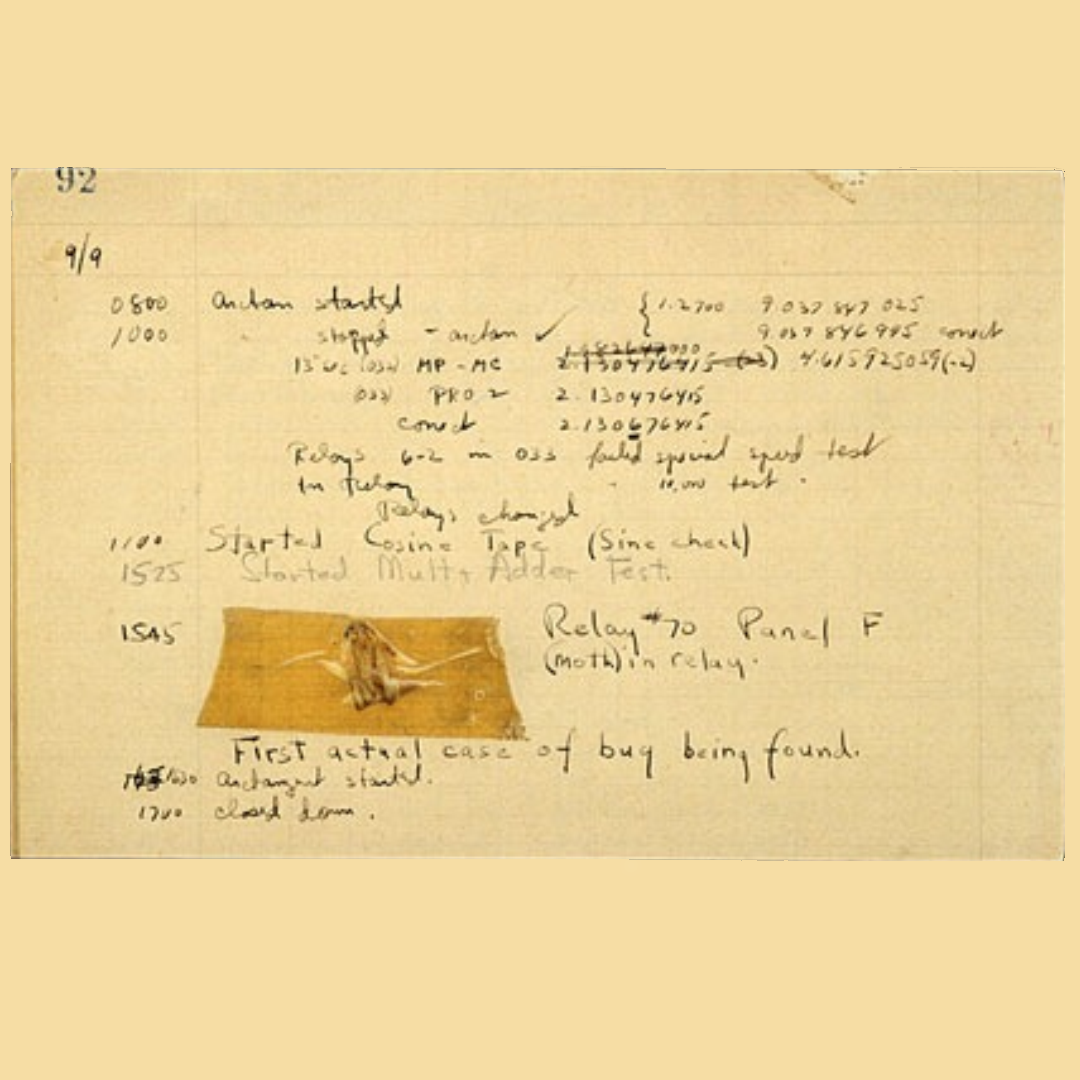 92
9/9
0800 Antan started { 1.2700 9.037 847 025
1000 " stopped - antan ✓ 9.037 846 995 conect
13"uc (032) MP - MC 2.130476415 (-3) 4.615925059(-2)
(033) PRO 2 2.130476415
conect 2.130676415
Relays 6-2 in 033 failed special speed test
In Relay " 10,000 test .
Relays changed
1100 Started Cosine Tape (Sine check)
1525 Started Mult+ Adder Test.
1545 Relay #70 Panel F
(Moth) in relay.
First actual case of bug being found.
1630 Antangent started.
1700 closed down .